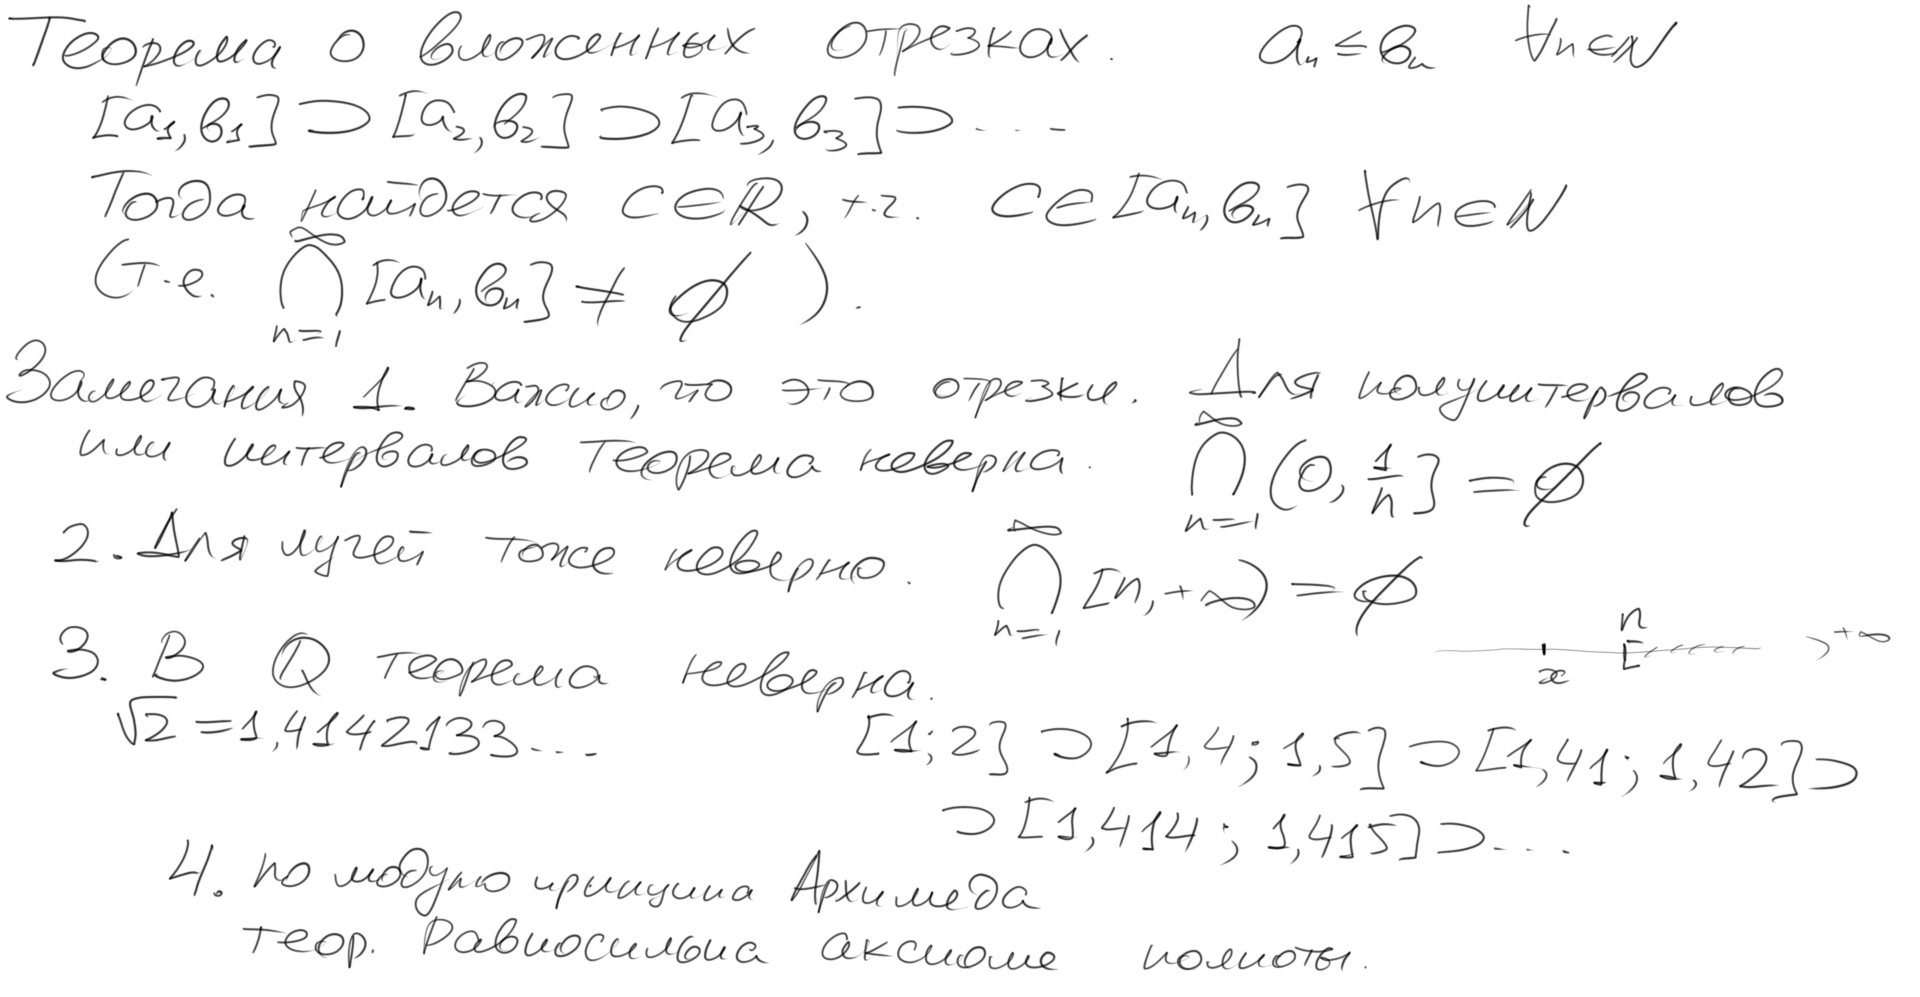 Теорема о вложенных отрезках. aₙ ≤ bₙ ∀n∈ℕ
[a₁,b₁] ⊃ [a₂,b₂] ⊃ [a₃,b₃] ⊃ ...
Тогда найдется c∈ℝ, т.ч. c∈[aₙ,bₙ] ∀n∈ℕ
(т.е. ⋂ₙ₌₁^∞ [aₙ,bₙ] ≠ ∅).
Замечания 1. Важно, что это отрезки. Для полуинтервалов
или интервалов теорема неверна. ⋂ₙ₌₁^∞ (0, 1/n] = ∅
2. Для лучей тоже неверно. ⋂ₙ₌₁^∞ [n,+∞) = ∅
x [ n ) +∞
3. В ℚ теорема неверна.
√2 = 1,4142133... [1;2] ⊃ [1,4; 1,5] ⊃ [1,41; 1,42] ⊃
⊃ [1,414; 1,415] ⊃ ...
4. по модулю принципа Архимеда
теор. Равносильна аксиоме полноты.